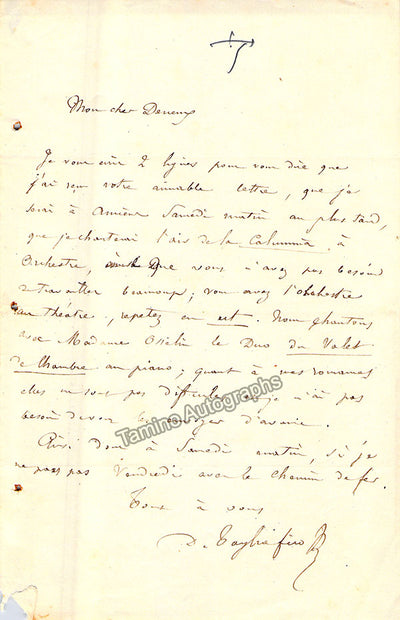 Mon cher Deneux
Je vous écris 2 lignes pour vous dire que
j'ai reçu votre aimable lettre, que je
serai à Amiens Samedi matin au plus tard,
que je chanterai l'air de la Calumnia à
Orchestre, que vous n'avez pas besoin
de travailler beaucoup; vous avez l'Orchestre
au théâtre, repetez en est. Nous chantons
avec Madame le Duo du Valet
de Chambre au piano; quant à mes romances
elles ne sont pas difficiles et je n'ai pas
besoin de vous d'avance.
Ainsi donc à Samedi matin, si je
ne pars pas Vendredi avec le chemin de fer.
Tout à vous
D. Tagliafico
Tamino Autographs